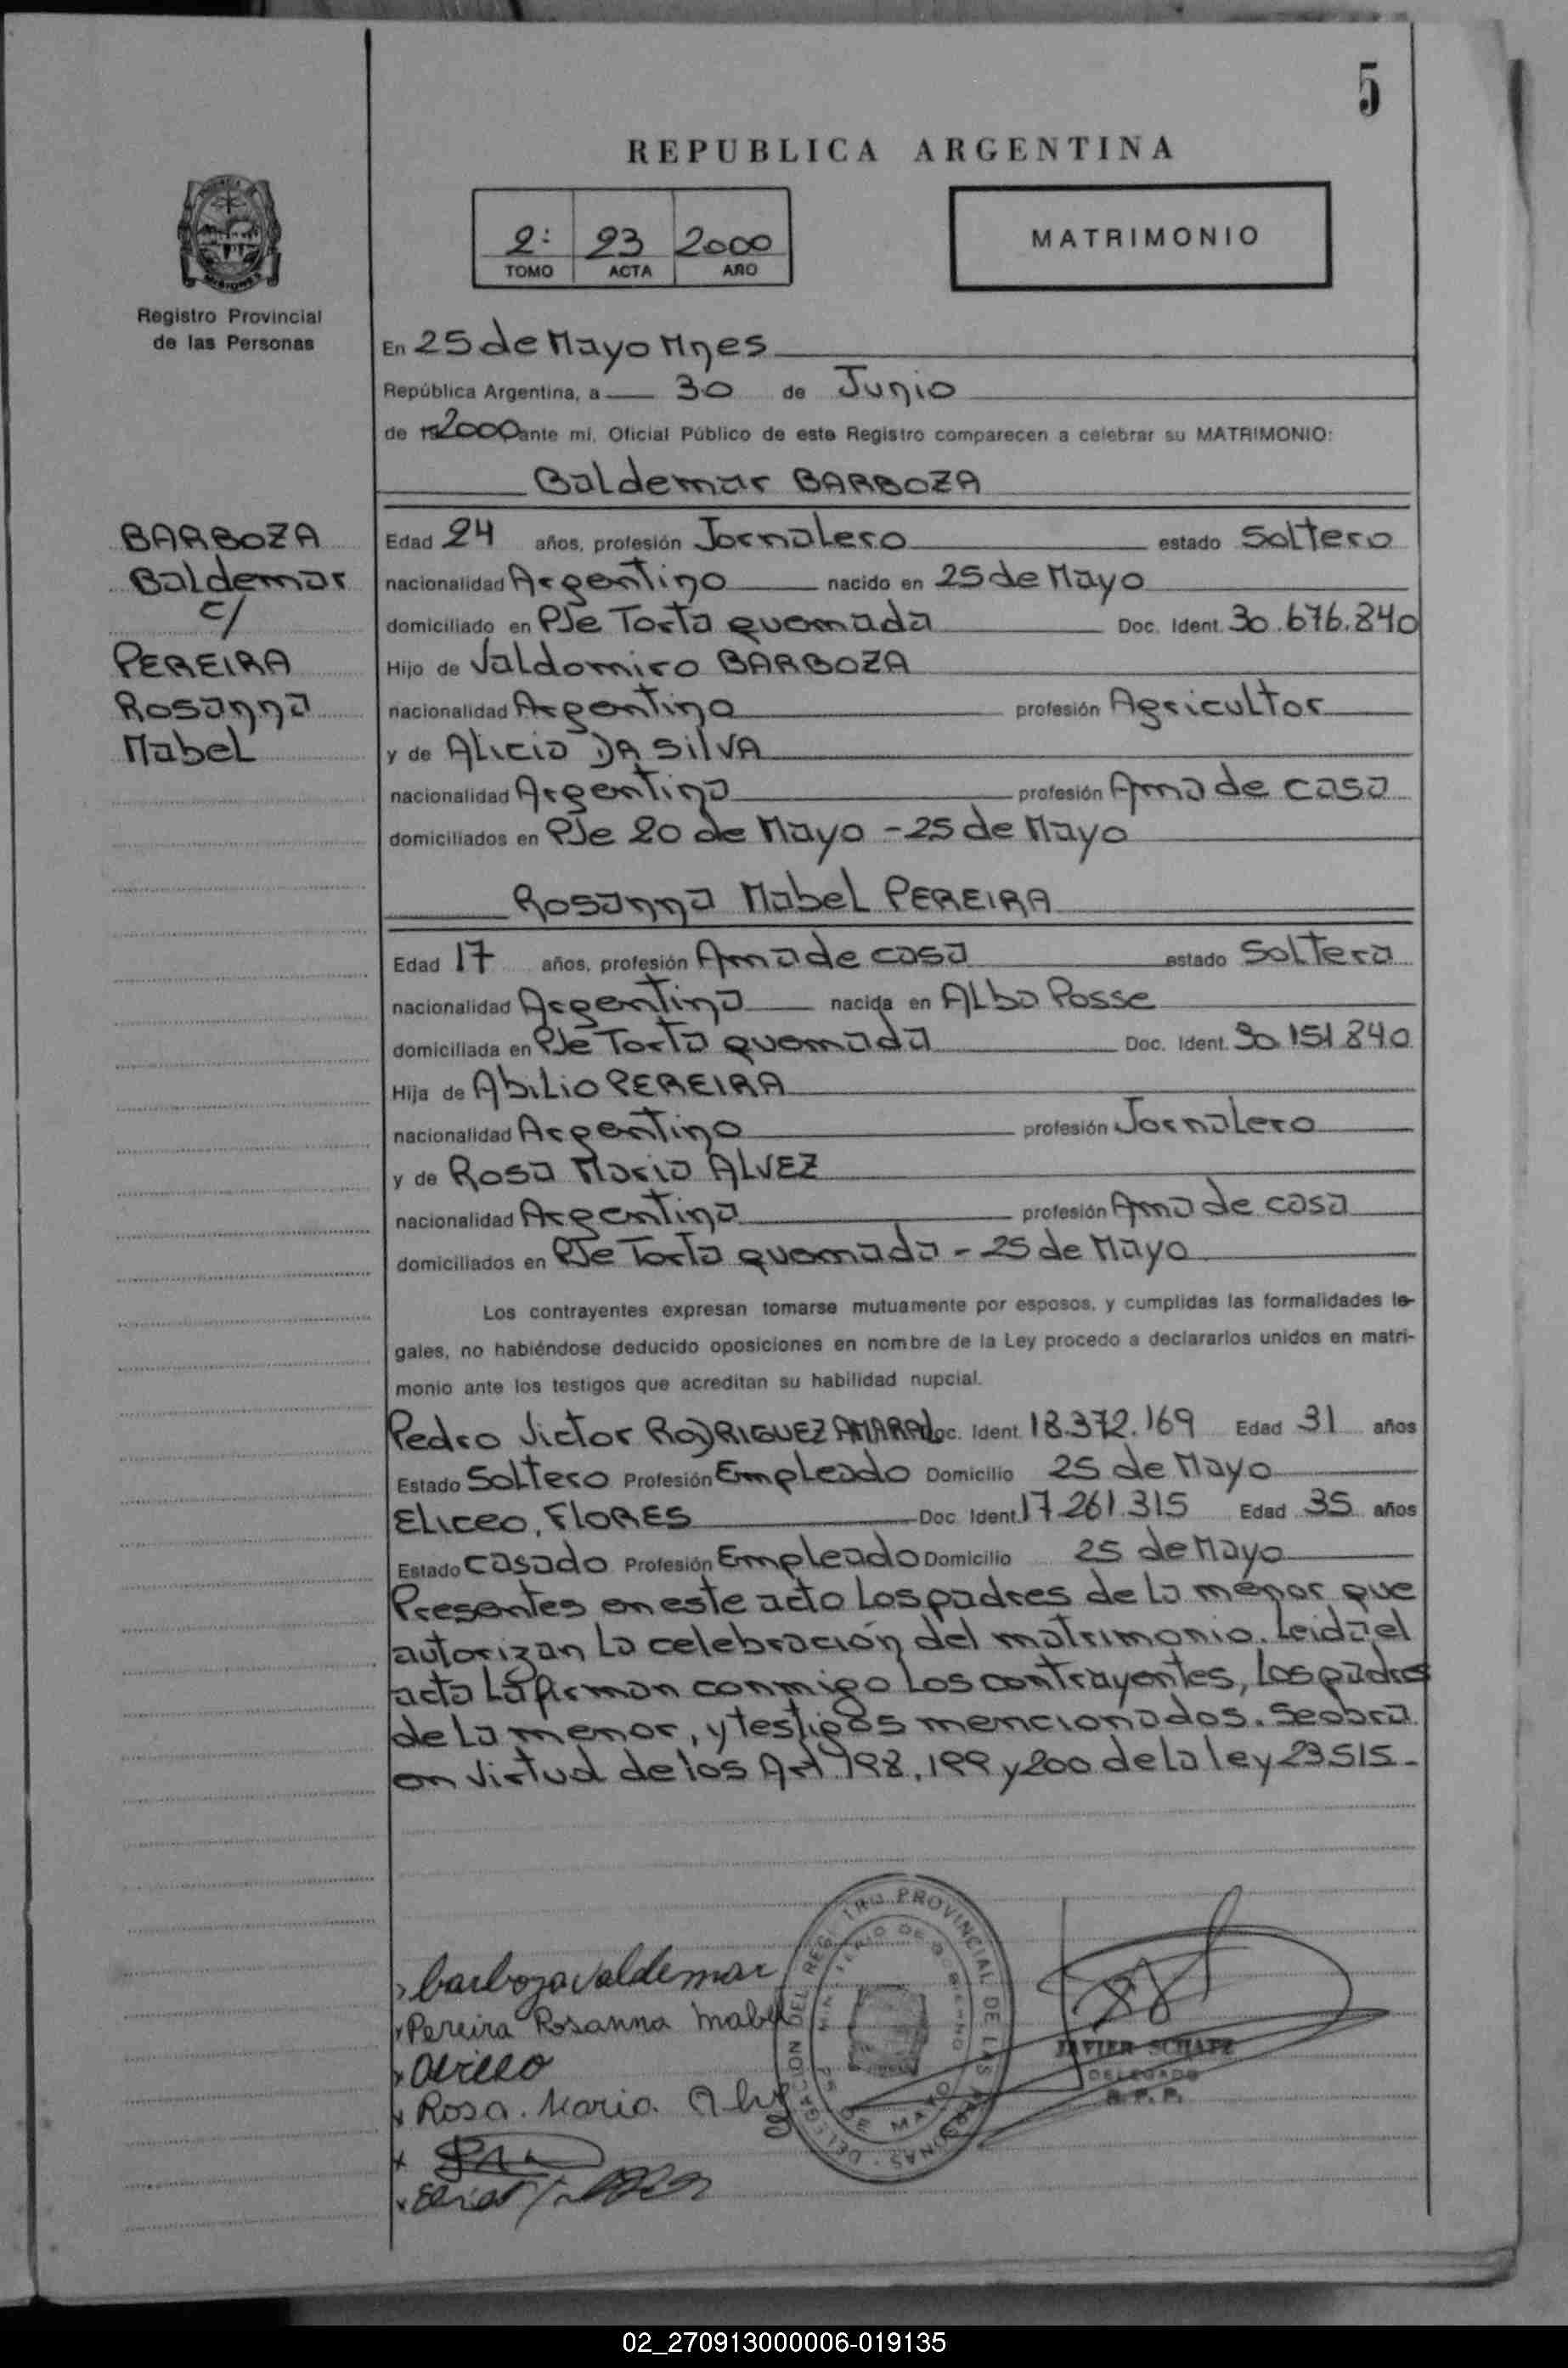 5
REPUBLICA ARGENTINA
2: 23 2000
TOMO ACTA AÑO
MATRIMONIO
Registro Provincial
de las Personas
En 25 de Mayo Mnes
República Argentina, a 30 de Junio
de 192000 ante mi, Oficial Público de este Registro comparecen a celebrar su MATRIMONIO:
Baldemar BARBOZA
BARBOZA
Baldemar
c/
PEREIRA
Rosanna
Mabel
Edad 24 años, profesión Jornalero estado Soltero
nacionalidad Argentino nacido en 25 de Mayo
domiciliado en PJe Torta quemada Doc. Ident. 30.676.840
Hijo de Valdomiro BARBOZA
nacionalidad Argentino profesión Agricultor
y de Alicia DA SilVA
nacionalidad Argentina profesión Ama de casa
domiciliados en PJe 20 de Mayo - 25 de Mayo
Rosanna Mabel PEREIRA
Edad 17 años, profesión Ama de casa estado Soltera
nacionalidad Argentina nacida en Alba Posse
domiciliada en PJe Torta quemada Doc. Ident. 30.151.840
Hija de Abilio PEREIRA
nacionalidad Argentino profesión Jornalero
y de Rosa Maria ALVEZ
nacionalidad Argentina profesión Ama de casa
domiciliados en PJe Torta quemada - 25 de Mayo
Los contrayentes expresan tomarse mutuamente por esposos, y cumplidas las formalidades le-
gales, no habiéndose deducido oposiciones en nombre de la Ley procedo a declararlos unidos en matri-
monio ante los testigos que acreditan su habilidad nupcial.
Pedro Victor RODRIGUEZ AMARAL Doc. Ident. 18.372.169 Edad 31 años
Estado Soltero Profesión Empleado Domicilio 25 de Mayo
Eliceo, FLORES Doc. Ident. 17.261.315 Edad 35 años
Estado casado Profesión Empleado Domicilio 25 de Mayo
Presentes en este acto los padres de la menor que
autorizan la celebración del matrimonio. Leida el
acta la firman conmigo los contrayentes, los padres
de la menor, y testigos mencionados. Se obra
en virtud de los Art 198, 199 y 200 de la ley 23.515.-
barboza valdemar
Pereira Rosanna Mabel
Rosa. Maria
DELEGACION DEL REGISTRO PROVINCIAL DE LAS PERSONAS
MINISTERIO DE GOBIERNO
25 DE MAYO
JAVIER SCHAPE
DELEGADO
R.P.P.
02_270913000006-019135